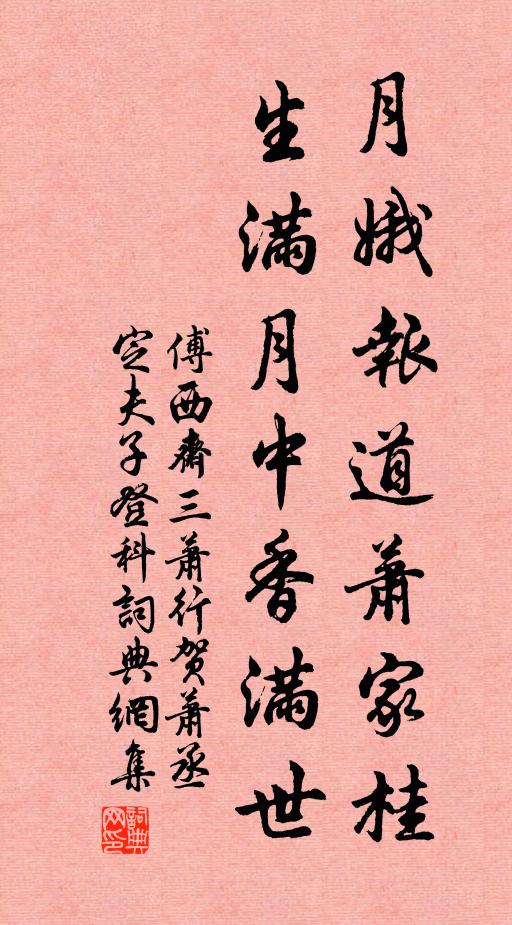 月娥報道蕭家桂
生滿月中香滿世
傅西齋三蕭行賀蕭丞
定夫子登科詞典網集
詞典
网印